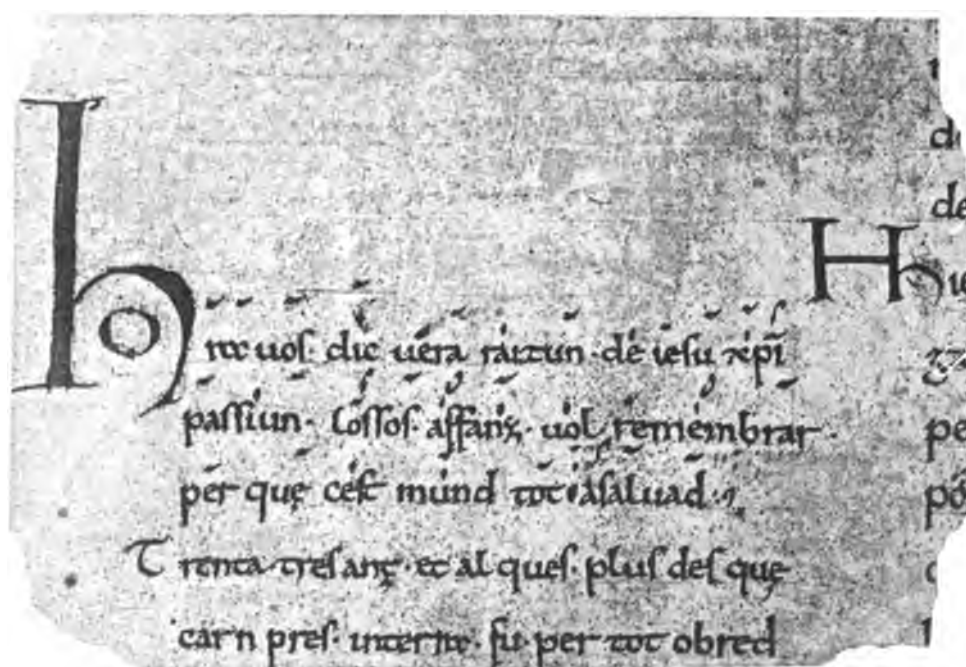 hora uos. dic uera raizun. de iesu xp̄i
passiun. los sos. affanz. uol remembrar.
per quę cest mund tot a saluad.
Trenta tres anz. et al ques. plus des quę
carn pres. in terre. fu per tot obred
de
de
H
pe